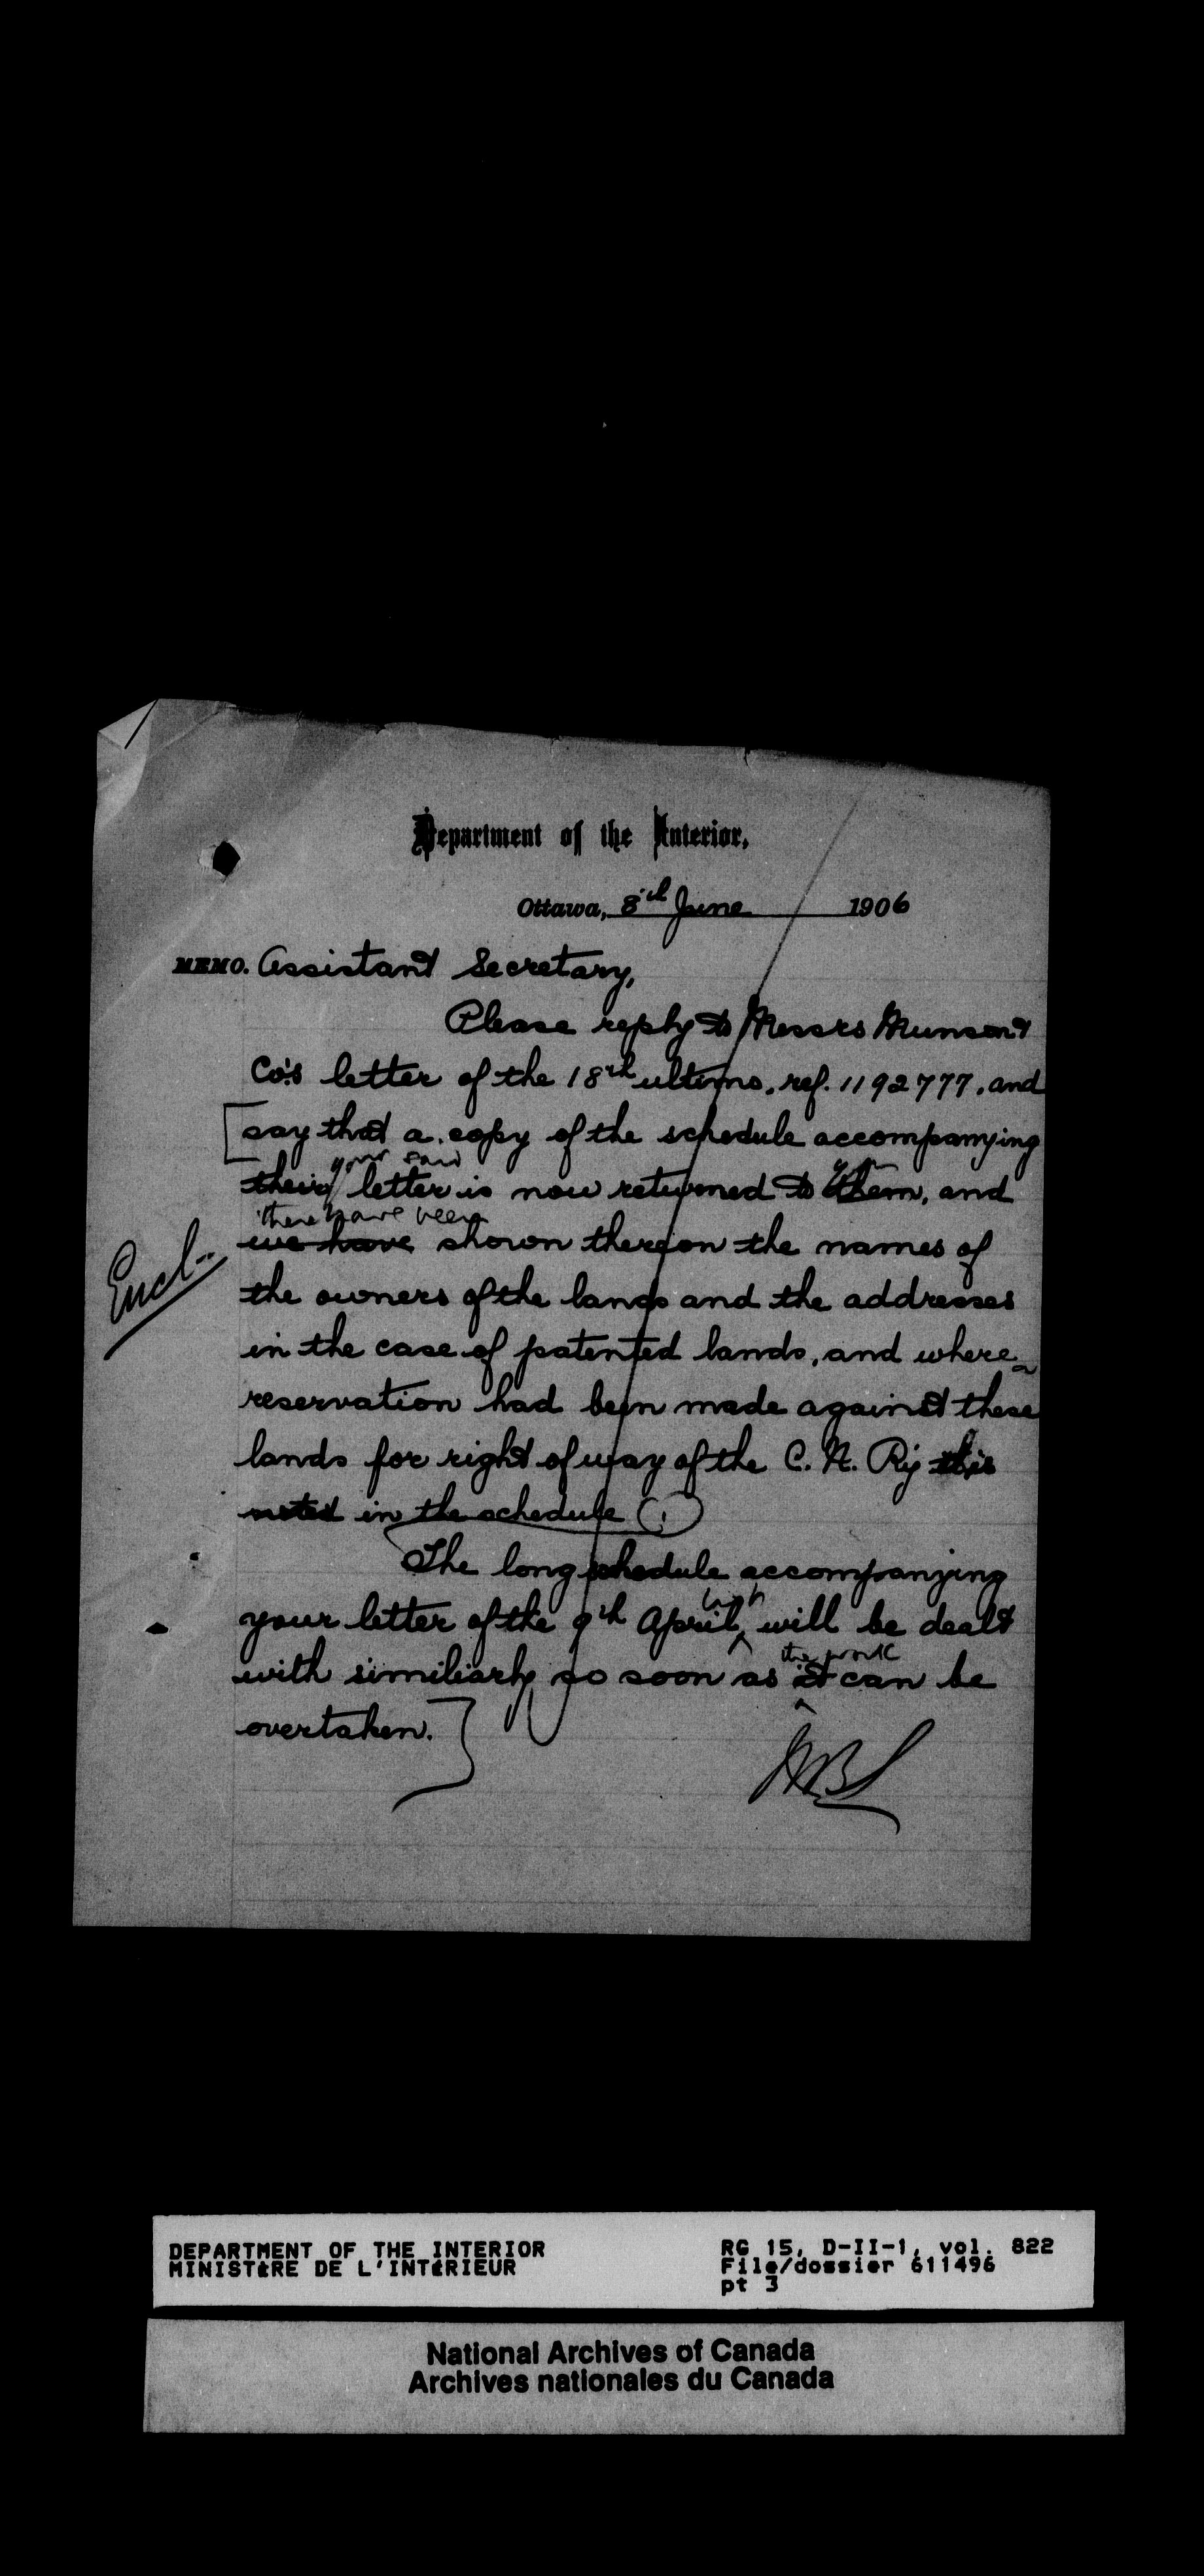 Department of the Interior,
Ottawa, 8th June 1906
MEMO. Assistant Secretary,
Please reply to Messrs Munson &
Co's letter of the 18th ultimo. ref. 1192777. and
[say that a copy of the schedule accompanying
your said
their letter is now returned to them, and
there have been
we have shown thereon the names of
Encl.
the owners of the lands and the addresses
in the case of patented lands, and where a
reservation had been made against these
lands for right of way of the C. N. Ry this
noted in the schedule
The long schedule accompanying
last
your letter of the 9th April will be dealt
the work
with similiarly so soon as it can be
overtaken.]
DEPARTMENT OF THE INTERIOR
MINISTÈRE DE L'INTÉRIEUR
RG 15, D-II-1, vol. 822
File/dossier 611496
pt 3
National Archives of Canada
Archives nationales du Canada